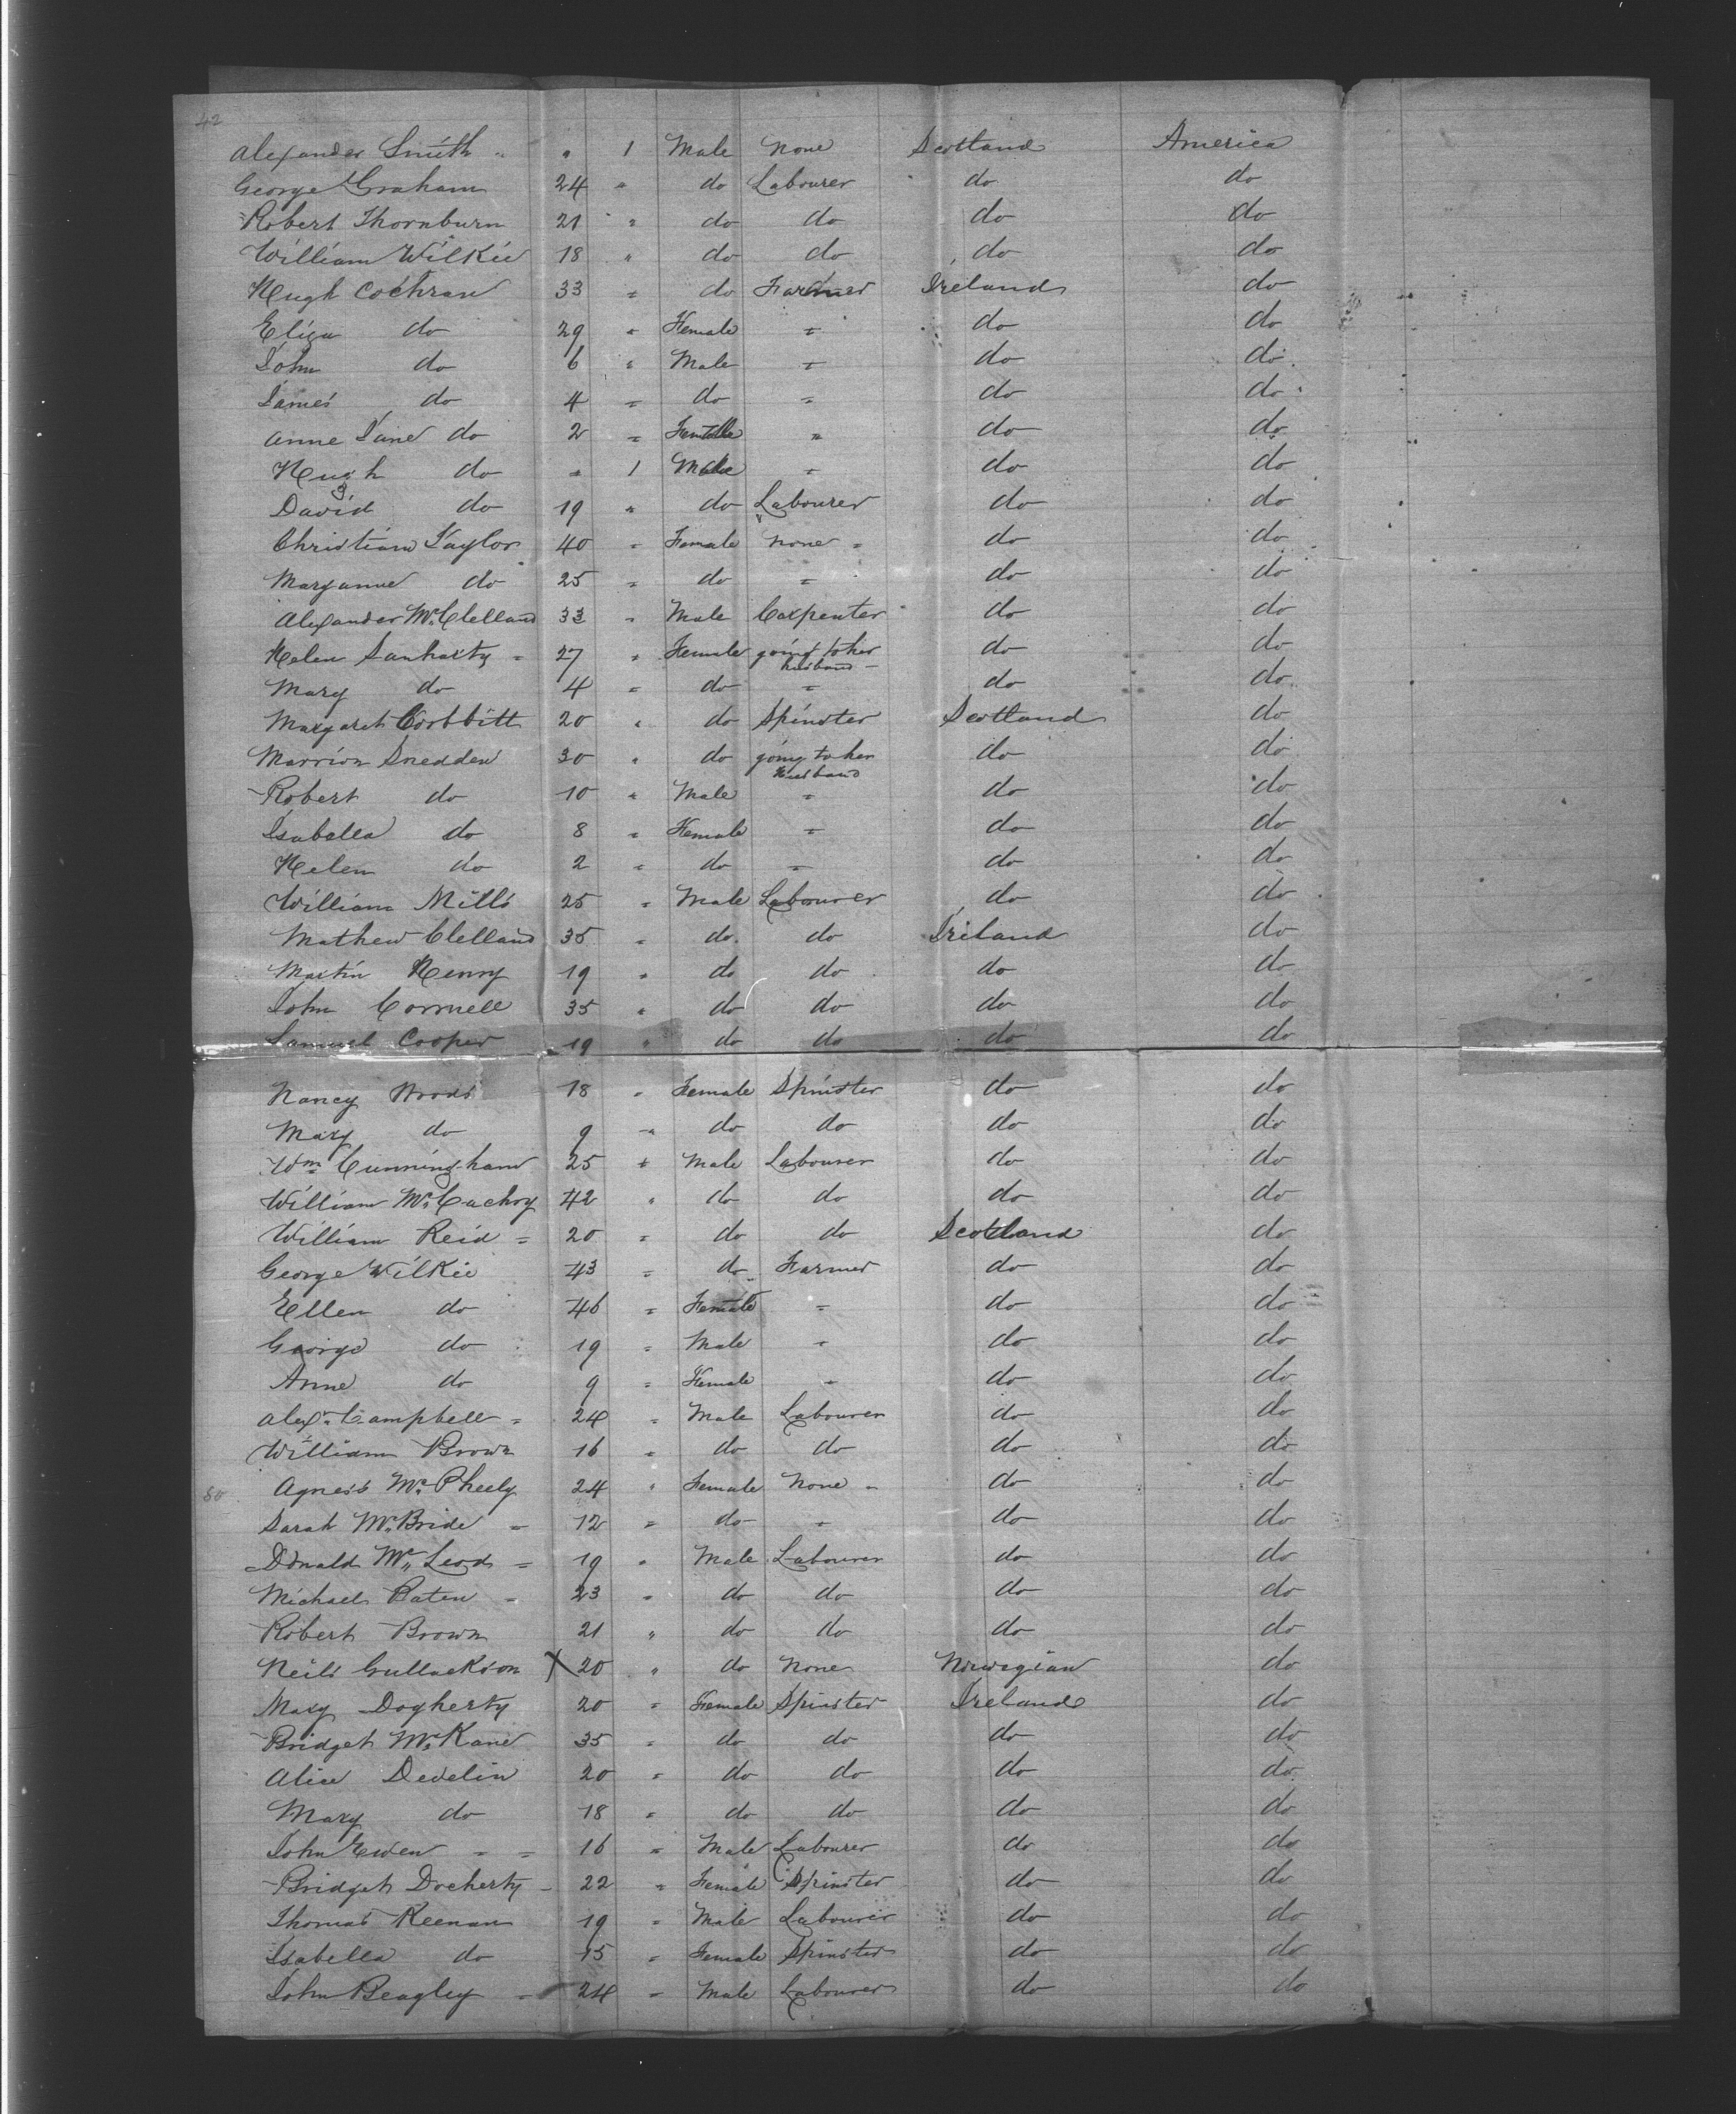 42
Alexander Smith " " 1 Male None Scotland America
George Graham 24 " do Labourer do do
Robert Thornburn 21 " do do do do
William Wilkie 18 " do do do do
Hugh Cochran 33 " do Farmer Ireland do
Eliza do 29 " Female " do do
John do 6 " Male " do do
James do 4 " do " do do
Anne Jane do 2 " Female " do do
Hugh do " 1 Male " do do
David do 19 " do Labourer do do
Christian Taylor 40 " Female None " do do
Maryanne do 25 " do " do do
Alexander Mc Clelland 33 " Male Carpenter do do
Helen 27 " Female going to her husband do do
Mary do 4 " do " do do
Margaret 20 " do Spinster Scotland do
Marrion Snedden 30 " do going to her Husband do do
Robert do 10 " Male " do do
Isabella do 8 " Female " do do
Helen do 2 " do " do do
William Mills 25 " Male Labourer do do
Mathew Clelland 35 " do do Ireland do
Martin Henry 19 " do do do do
John 35 " do do do do
Samuel Cooper 19 " do do do do
Nancy Woods 18 " Female Spinster do do
Mary do 9 " do do do do
Wm Cunningham 25 " Male Labourer do do
William Mc Cachry 42 " do do do do
William Reid " 20 " do do Scotland do
George Wilkie 43 " do Farmer do do
Ellen do 46 " Female " do do
George do 19 " Male " do do
Anne do 9 " Female " do do
Alexr Campbell " 24 " Male Labourer do do
William Brown 16 " do do do do
80 Agness Mc Pheely 24 " Female None " do do
Sarah Mc Bride " 12 " do " do do
Donald Mc Leod " 19 " Male Labourer do do
Michael Paten " 23 " do do do do
Robert Brown 21 " do do do do
Neils Gullackson X 20 " do None Norwegian do
Mary Dogherty 20 " Female Spinster Ireland do
Bridget Mc Kane 35 " do do do do
Alice Develin 20 " do do do do
Mary do 18 " do do do do
John Ewen " " 16 " Male Labourer do do
Bridget Docherty " 22 " Female Spinster do do
Thomas Keenan 19 " Male Labourer do do
Isabella do 15 " Female Spinster do do
John Beagley " 24 " Male Labourer do do